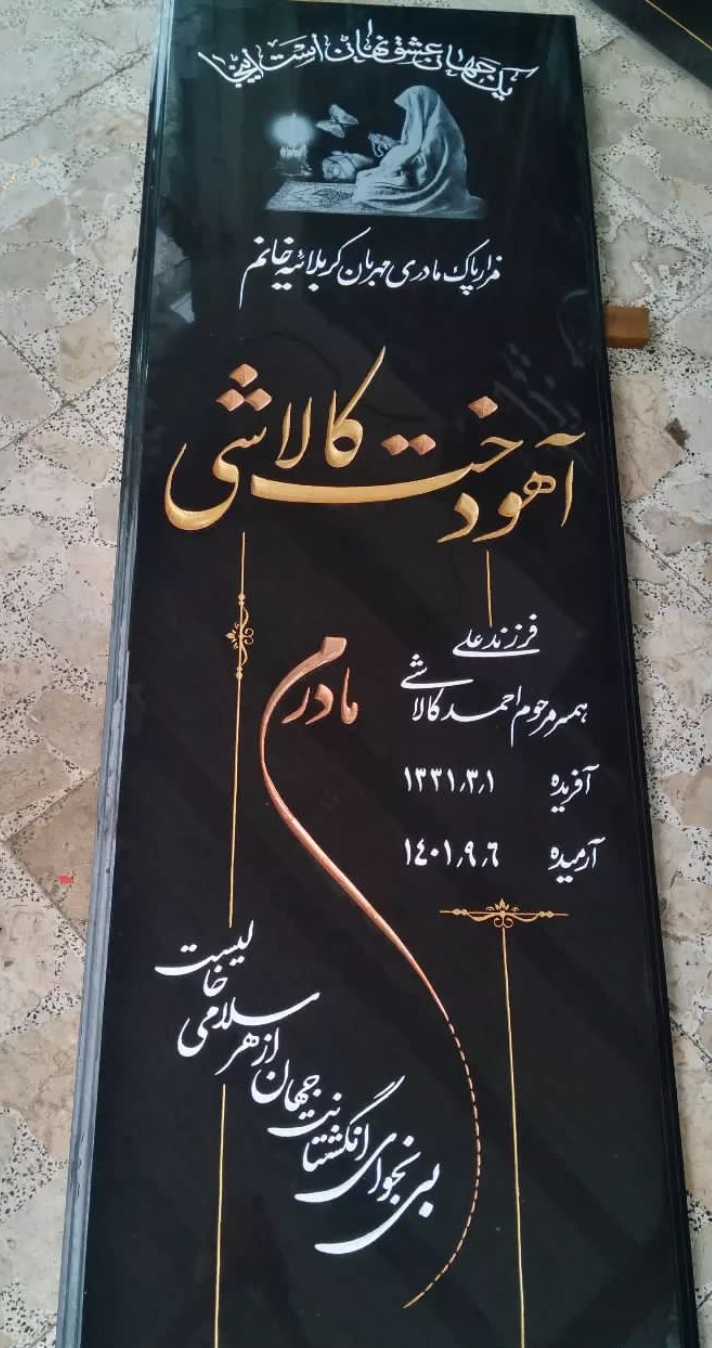 یک جهان عشق نهان است اینجا
مزار پاک مادری مهربان کربلائیه خانم
آهودخت کالاشی
فرزند علی
همسر مرحوم احمد کالاشی
آفریده ۱۳۳۱٫۳٫۱
آرمیده ۱۴۰۱٫۹٫۶
مادرم
بی نجوای انگشتانت جهان از هر سلامی خالیست